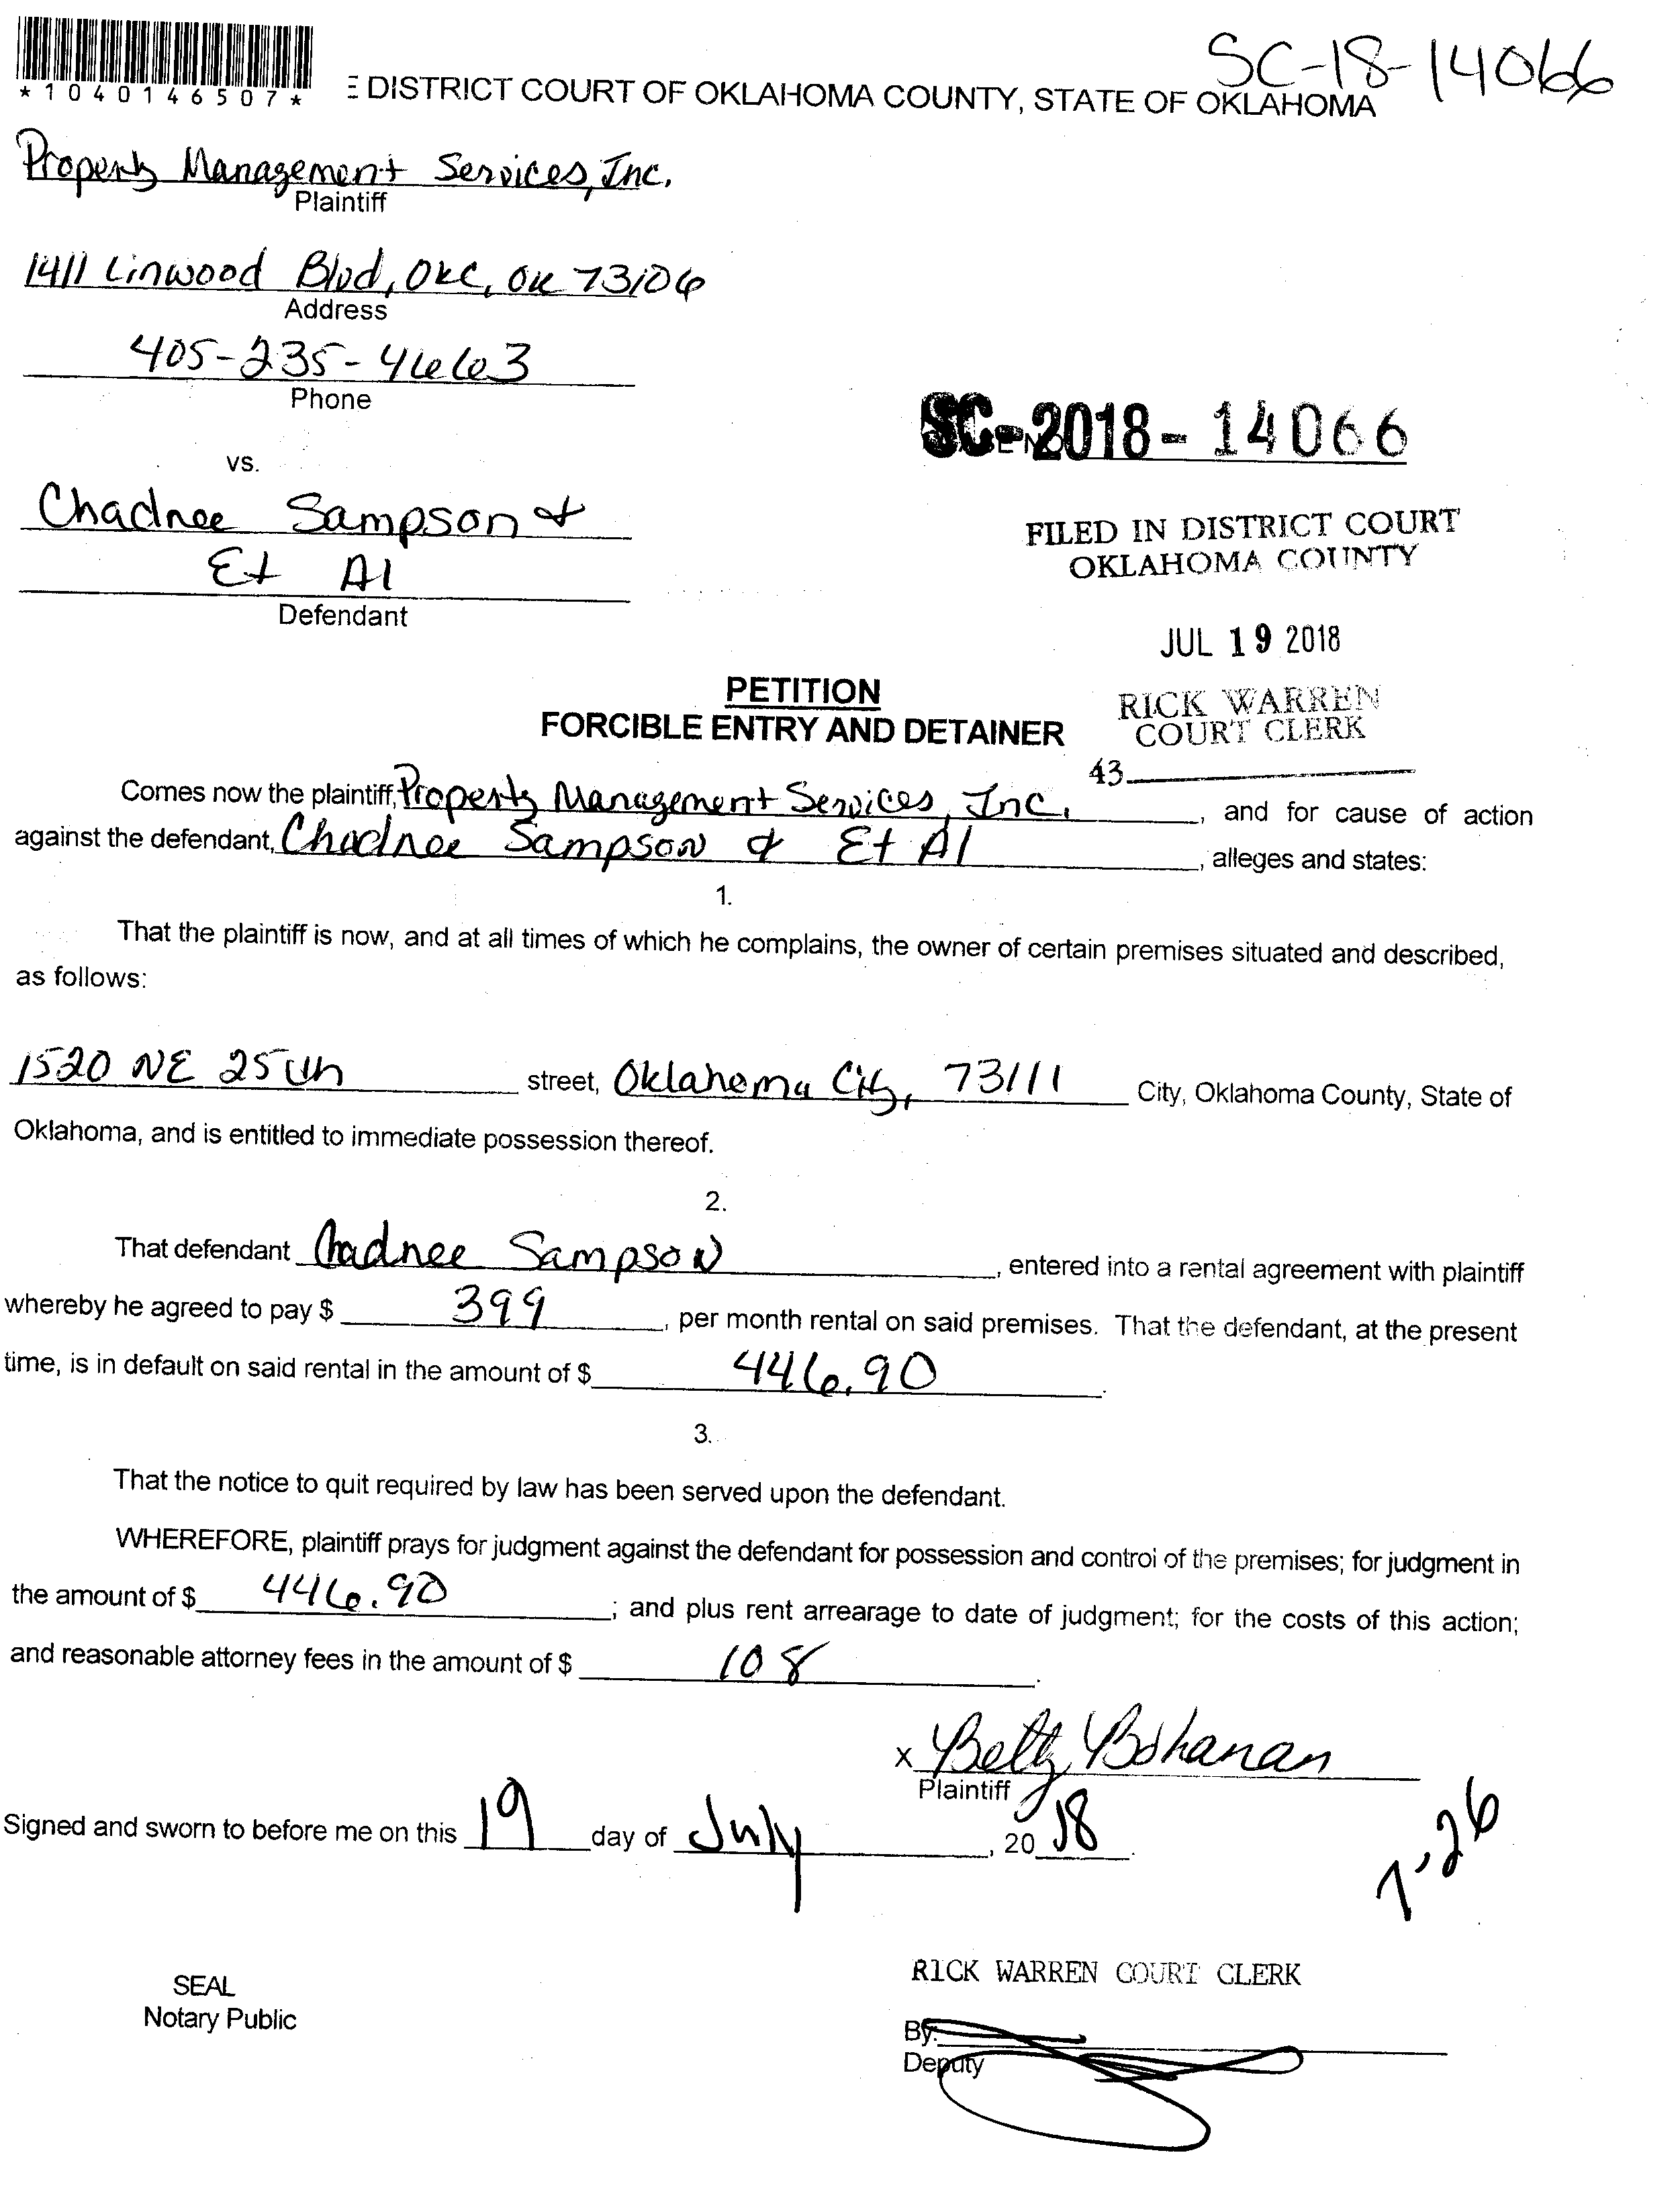 SC-18-14066
*1040146507*
E DISTRICT COURT OF OKLAHOMA COUNTY, STATE OF OKLAHOMA
Property Management Services, Inc.
Plaintiff
1411 Linwood Blvd, OKC, OK 73106
Address
405-235-4663
Phone
SC-2018-14066
vs.
Chadnee Sampson &
Et Al
Defendant
FILED IN DISTRICT COURT
OKLAHOMA COUNTY
JUL 19 2018
RICK WARREN
COURT CLERK
43
PETITION
FORCIBLE ENTRY AND DETAINER
Comes now the plaintiff, Property Management Services, Inc., and for cause of action
against the defendant, Chadnee Sampson & Et Al, alleges and states:
1.
That the plaintiff is now, and at all times of which he complains, the owner of certain premises situated and described,
as follows:
1520 NE 25th street, Oklahoma City, 73111 City, Oklahoma County, State of
Oklahoma, and is entitled to immediate possession thereof.
2.
That defendant Chadnee Sampson, entered into a rental agreement with plaintiff
whereby he agreed to pay $ 399, per month rental on said premises. That the defendant, at the present
time, is in default on said rental in the amount of $ 446.90.
3.
That the notice to quit required by law has been served upon the defendant.
WHEREFORE, plaintiff prays for judgment against the defendant for possession and control of the premises; for judgment in
the amount of $ 446.90; and plus rent arrearage to date of judgment; for the costs of this action;
and reasonable attorney fees in the amount of $ 108.
x Betty Bohanan
Plaintiff
Signed and sworn to before me on this 19 day of July, 2018.
7-26
SEAL
Notary Public
RICK WARREN COURT CLERK
By:
Deputy